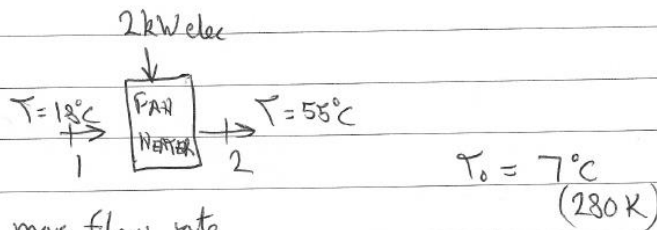 2kW elec
T=18°C
FAN
HEATER
T=55°C
1
2
T₀ = 7°C
(280K)
mass flow rate